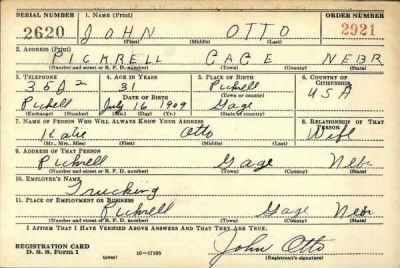 SERIAL NUMBER 1. NAME (Print) ORDER NUMBER
2620 JOHN OTTO 2921
(First) (Middle) (Last)
2. ADDRESS (Print)
PICKRELL GAGE NEBR
(Number and street or R. F. D. number) (Town) (County) (State)
3. TELEPHONE 4. AGE IN YEARS 5. PLACE OF BIRTH 6. COUNTRY OF CITIZENSHIP
35J2 31 Pickrell USA
DATE OF BIRTH (Town or county)
Pickrell July 16 1909 Gage
(Exchange) (Number) (Mo.) (Day) (Yr.) (State or country)
7. NAME OF PERSON WHO WILL ALWAYS KNOW YOUR ADDRESS 8. RELATIONSHIP OF THAT PERSON
Katie Otto Wife
(Mr., Mrs., Miss) (First) (Middle) (Last)
9. ADDRESS OF THAT PERSON
Pickrell Gage Nebr
(Number and street or R. F. D. number) (Town) (County) (State)
10. EMPLOYER'S NAME
Trucking
11. PLACE OF EMPLOYMENT OR BUSINESS
Pickrell Gage Nebr
(Number and street or R. F. D. number) (Town) (County) (State)
I AFFIRM THAT I HAVE VERIFIED ABOVE ANSWERS AND THAT THEY ARE TRUE.
REGISTRATION CARD
D. S. S. Form 1 John Otto
(over) (Registrant's signature)